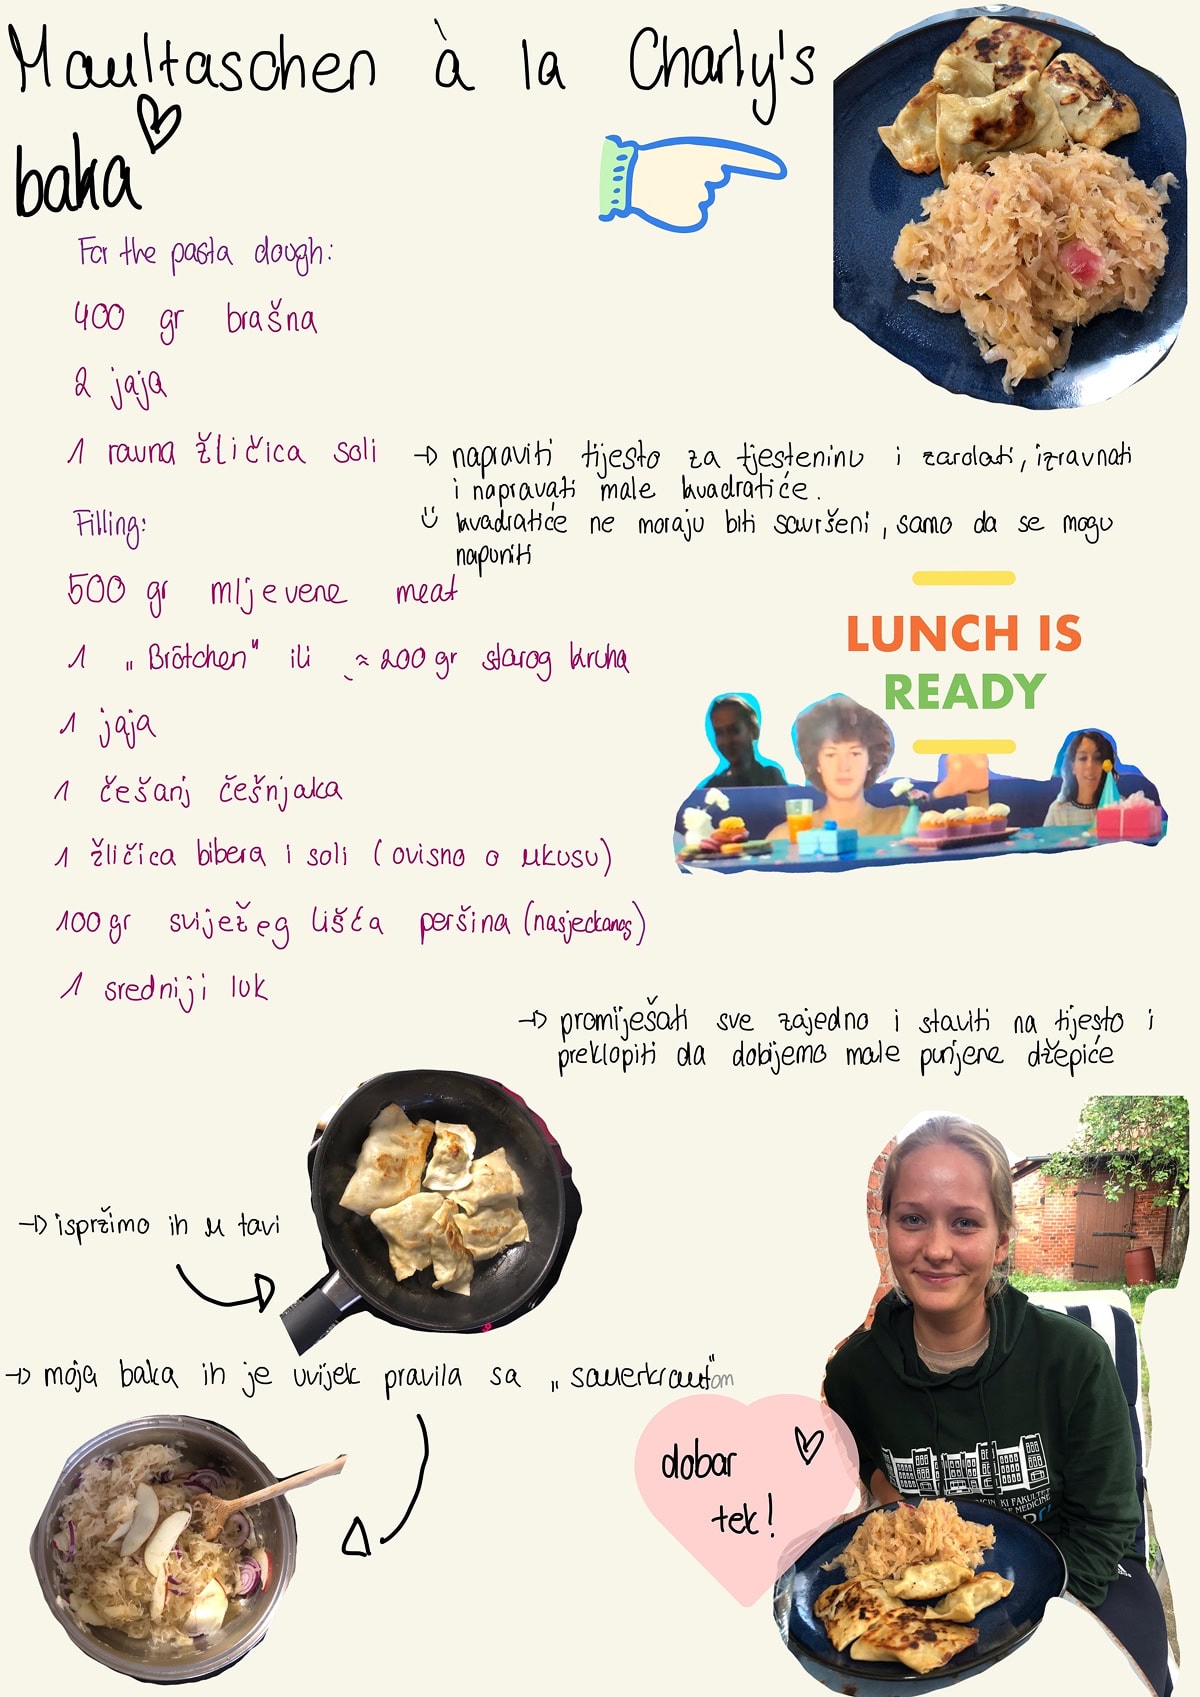 Maultaschen à la Charly's
baka
For the pasta dough:
400 gr brašna
2 jaja
1 ravna žličica soli
→ napraviti tijesto za tjesteninu i zarolati, izravnati
i napravati male kvadratiće.
kvadratiće ne moraju biti savršeni, samo da se mogu
napuniti
Filling:
500 gr mljevene meat
1 „Brötchen" ili ≈ 200 gr starog kruha
1 jaja
1 češanj češnjaka
1 žličica bibera i soli (ovisno o ukusu)
100 gr svježeg lišća peršina (nasjeckanog)
1 srednji luk
LUNCH IS
READY
→ promiješati sve zajedno i staviti na tijesto i
preklopiti da dobijemo male punjene džepiće
→ ispržimo ih u tavi
→ moja baka ih je uvijek pravila sa „sauerkraut"om
dobar
tek!
KI FAKULTET
OF MEDICINE